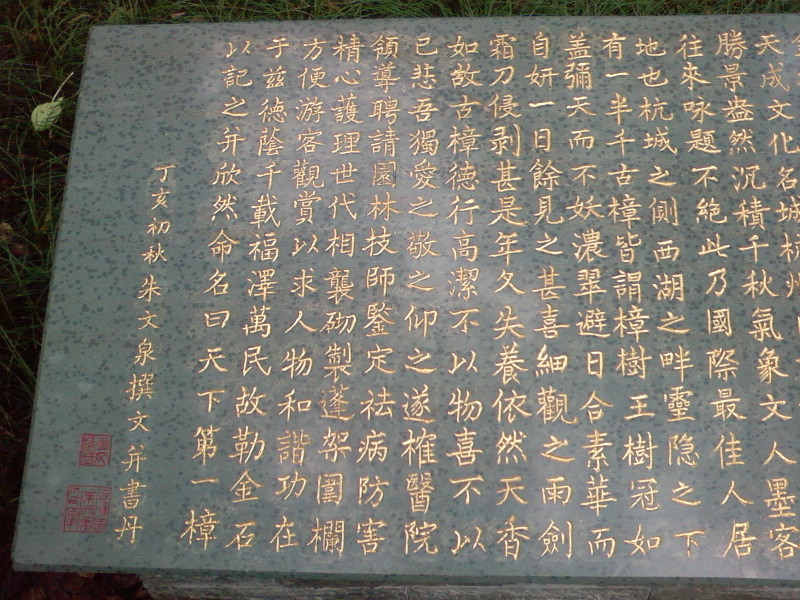 天成文化名城杭州
勝景盎然沉積千秋氣象文人墨客
往來咏題不絕此乃國際最佳人居
地也杭城之側西湖之畔靈隐之下
有一半千古樟皆謂樟樹王樹冠如
盖彌天而不妖濃翠避日合素華而
自妍一日餘見之甚喜細觀之雨劍
霜刀侵剥甚是年久失養依然天香
如故古樟德行高潔不以物喜不以
已悲吾獨愛之敬之仰之遂榷醫院
領導聘請園林技師鑒定祛病防害
精心護理世代相襲砌製蓬架圍欄
方便游客觀賞以求人物和諧功在
于兹德蔭千載福澤萬民故勒金石
以記之并欣然命名曰天下第一樟
丁亥初秋朱文泉撰文并書丹